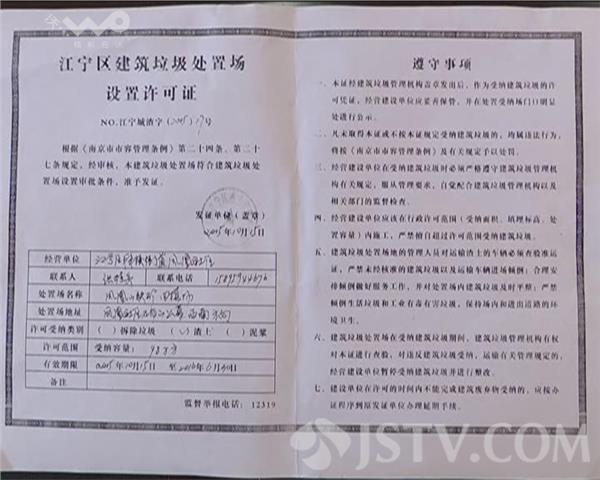 江宁区建筑垃圾处置场
设置许可证
NO.江宁城渣字(2015)19号
根据《南京市市容管理条例》第二十四条、第二十
七条规定，经审核，本建筑垃圾处置场符合建筑垃圾处
置场设置审批条件，准予发证。
发证单位（盖章）
2015年10月15日
经营单位
联系人
联系电话
处置场名称
处置场地址
许可受纳类别 （ ）拆除垃圾 （√）渣土 （ ）泥浆
许可范围 受纳容量：
有效期限 2015年10月15日 至2016年6月30日
备注
监督举报电话：12319
遵守事项
一、本证经建筑垃圾管理机构盖章发出后，作为受纳建筑垃圾的许
可凭证，经营建设单位应妥善保管，并在处置受纳场门口明显
处进行公示。
二、凡未取得本证或不按本证规定受纳建筑垃圾的，均属违法行为，
将按《南京市市容管理条例》及有关规定予以处罚。
三、经营建设单位在受纳建筑垃圾时必须严格遵守建筑垃圾管理机
构有关规定，服从管理要求，自觉配合建筑垃圾管理机构以及
相关部门的监督检查。
四、经营建设单位应该在行政许可范围（受纳面积、填埋标高、处
置容量）内施工，严禁擅自超过许可范围受纳建筑垃圾。
五、建筑垃圾处置场地的管理人员对运输渣土的车辆必须查验准运
证，严禁未经核准的建筑垃圾以及运输车辆进场倾倒；合理安
排倾倒做好服务工作，并对处置场内建筑垃圾及时平整；严禁
倾倒生活垃圾和工业有毒有害垃圾，保持场内和进出道路的环
境卫生。
六、建筑垃圾处置场在受纳建筑垃圾期间，建筑垃圾管理机构有权
对本证进行查验，对违反建筑垃圾受纳、运输有关管理规定的，
经营建设单位暂停受纳建筑垃圾并进行整改。
七、建设单位在许可的时间内不能完成建筑废弃物受纳的，应按办
证程序到原发证单位办理延期手续。
JSTV.COM